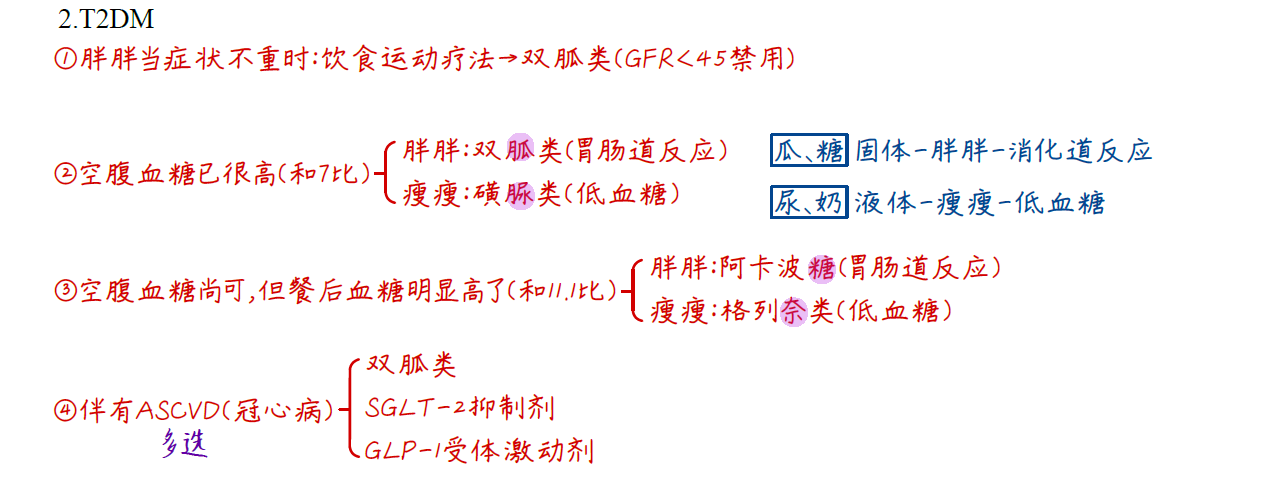 2.T2DM
①胖胖当症状不重时:饮食运动疗法→双胍类(GFR<45禁用)
②空腹血糖已很高(和7比)
胖胖:双胍类(胃肠道反应)
瘦瘦:磺脲类(低血糖)
瓜、糖 固体-胖胖-消化道反应
尿、奶 液体-瘦瘦-低血糖
③空腹血糖尚可,但餐后血糖明显高了(和11.1比)
胖胖:阿卡波糖(胃肠道反应)
瘦瘦:格列奈类(低血糖)
④伴有ASCVD(冠心病)
多选
双胍类
SGLT-2抑制剂
GLP-1受体激动剂